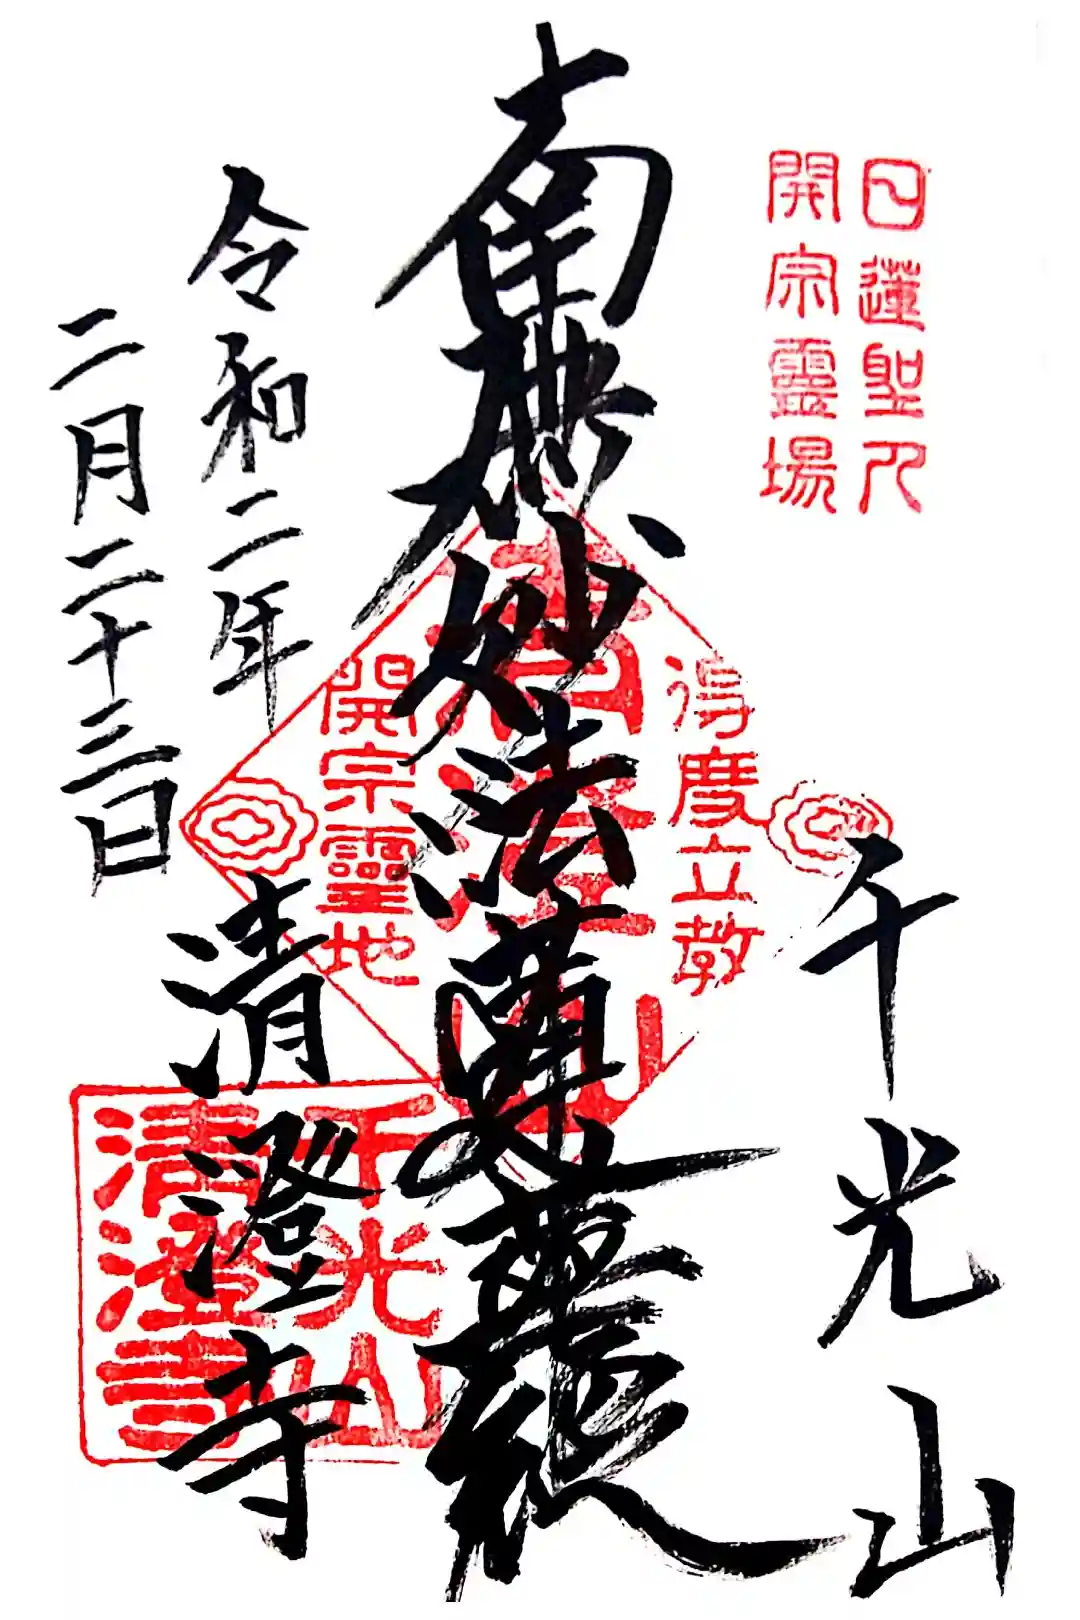 日蓮聖人
開宗靈場
千光山
得度立教
南無妙法蓮華経
開宗靈地
令和二年
二月二十三日
清澄寺
千光山
清澄寺